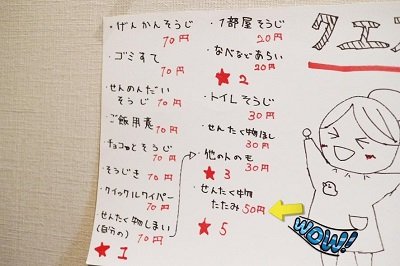 クエス
・げんかんそうじ
10円
・ゴミすて
10円
・せんめんだい
そうじ 10円
・ご飯用意
10円
・チョコっとそうじ
10円
・そうじき 10円
・クイックルワイパー
10円
・せんたく物しまい
(自分の) 10円
★1
・1部屋そうじ
20円
・なべなどあらい
★2 20円
・トイレそうじ
30円
・せんたく物ほし
30円
・他の人のも
★3 30円
・せんたく物
たたみ 50円
★5
WOW!